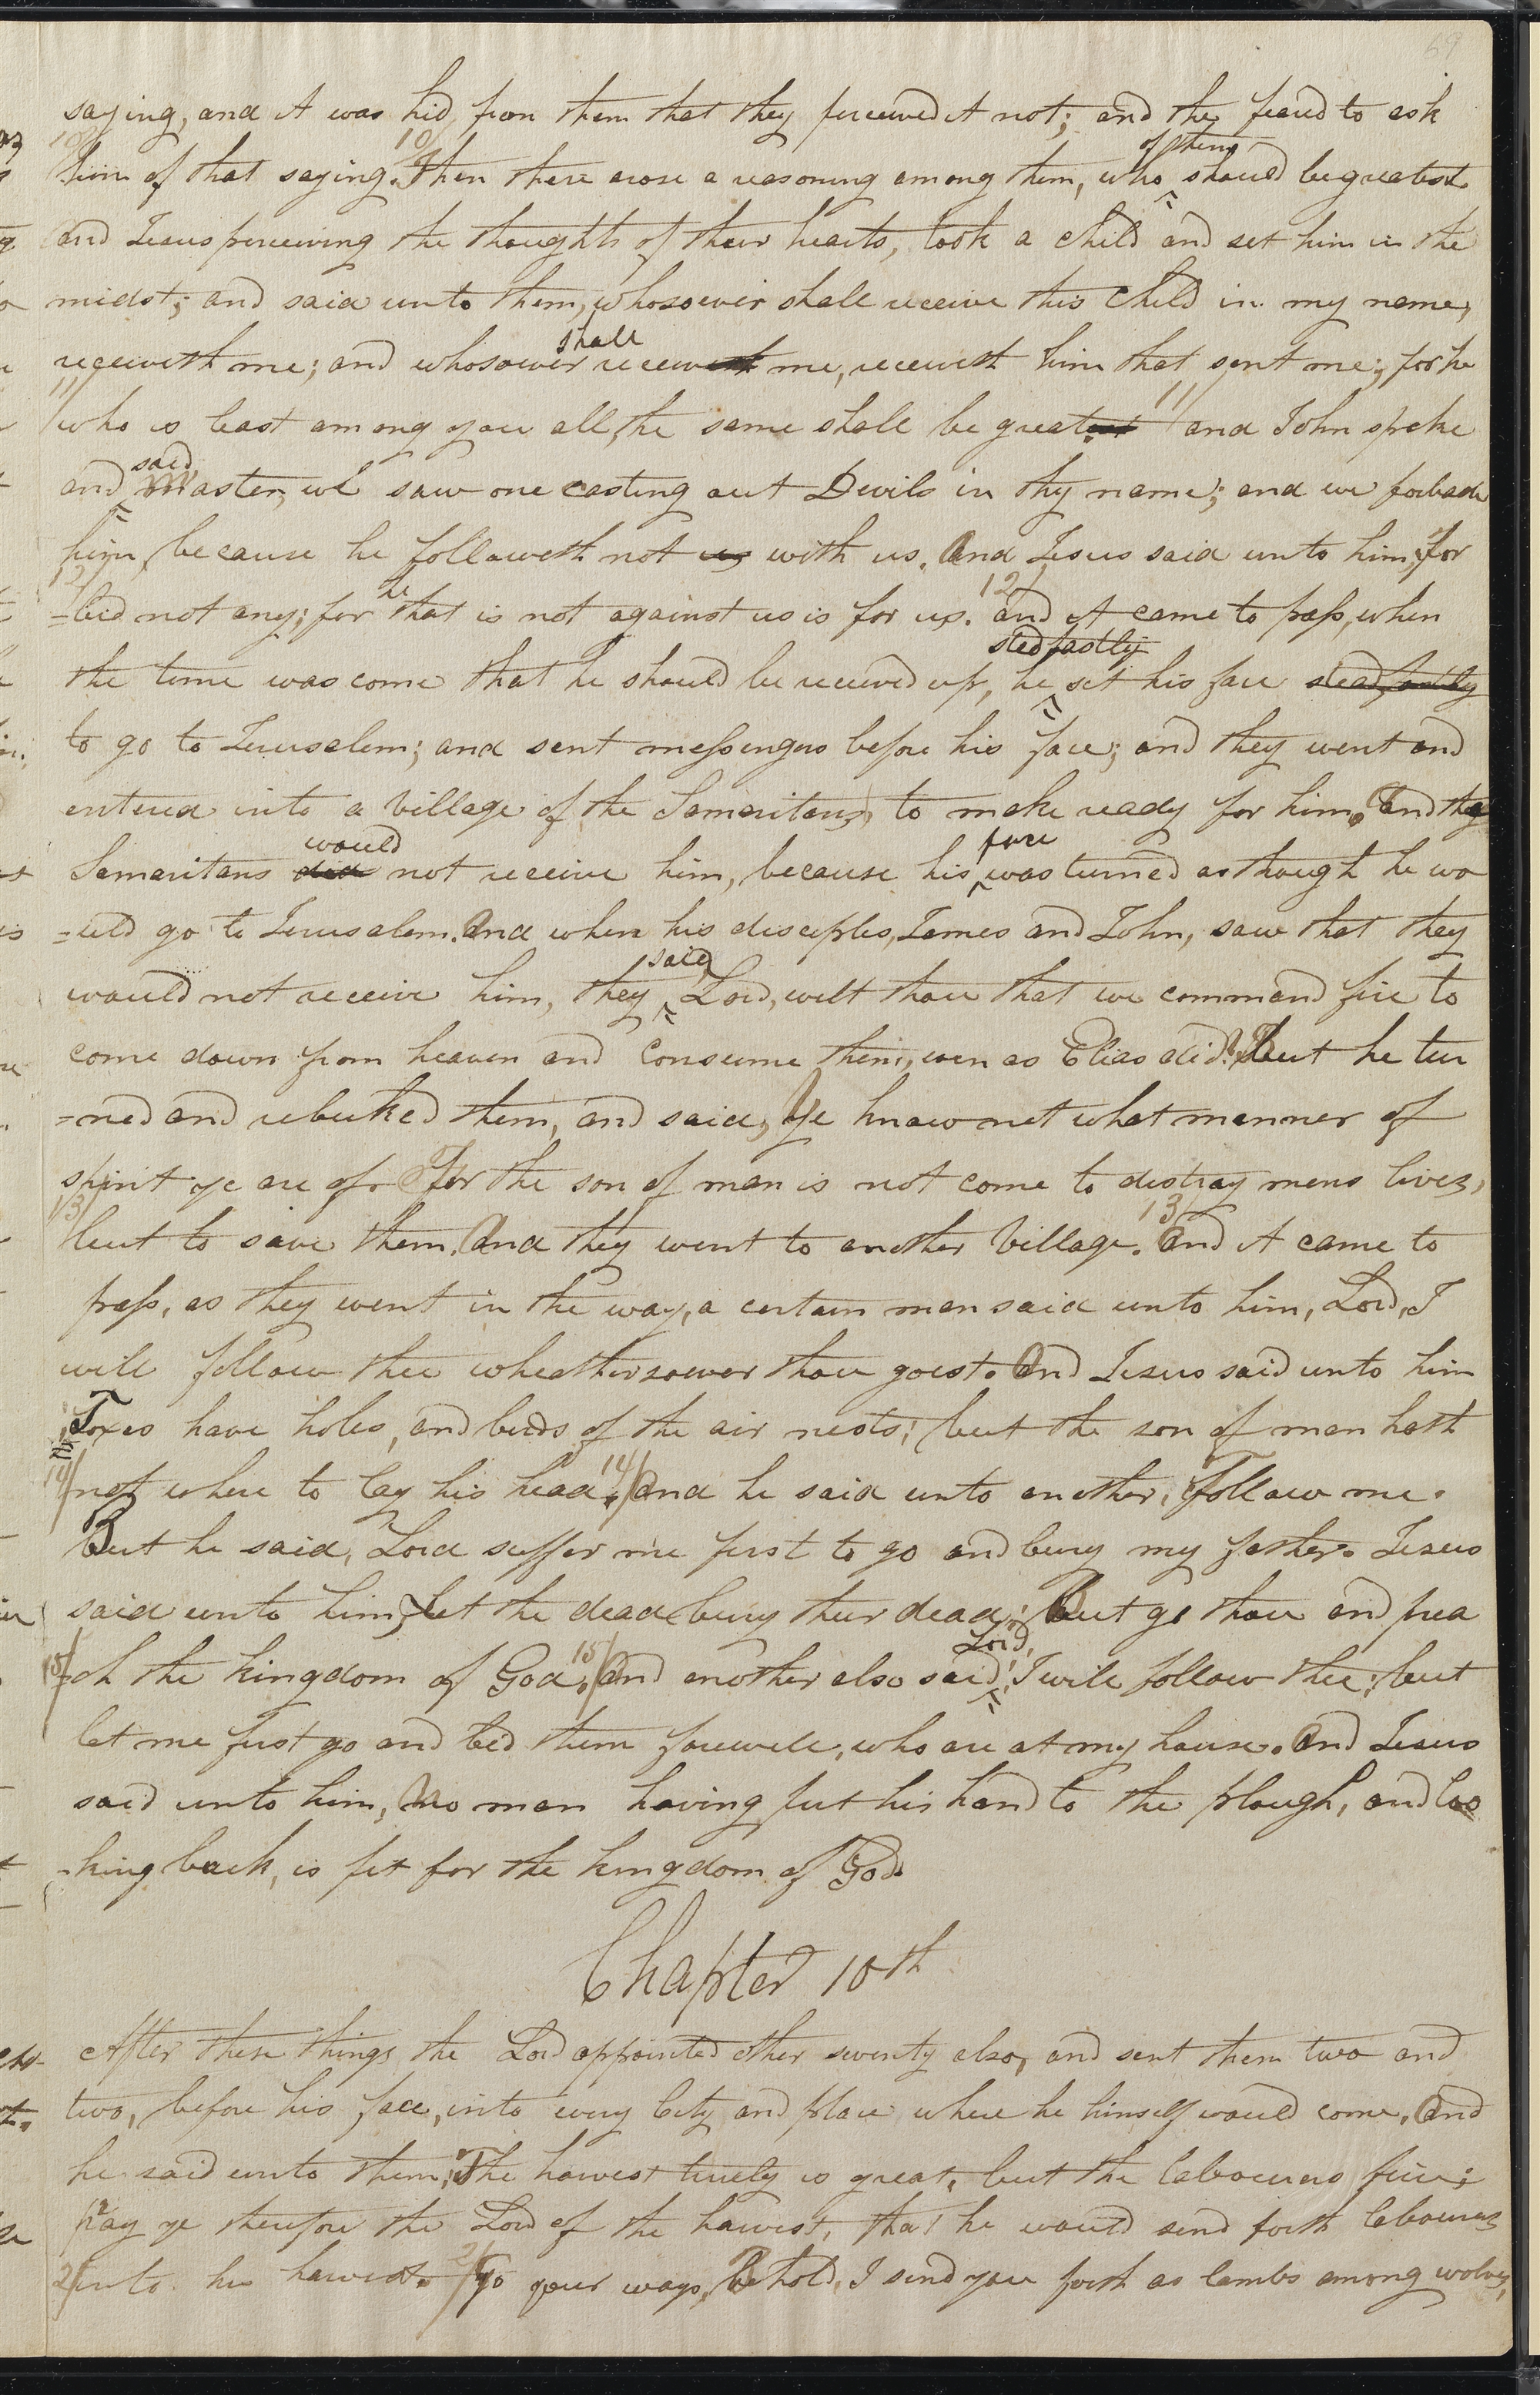 69
saying, and it was hid from them that they perceived it not; and they feared to ask
10/ him of that saying. 10/ Then there arose a reasoning among them, who of them should be greatest
and Jesus perceiving the thoughts of their hearts, took a child and set him in the
midst; and said unto them, whosoever shall receive this child in my name,
receiveth me; and whosoever shall receiveth me, receiveth him that sent me; for he
11/ who is least among you all, the same shall be greatest 11/ and John spake
and said, Master, we saw one casting out Devils in thy name; and we forbade
him, because he followeth not us with us. And Jesus said unto him, For
12/ =bid not any; for he that is not against us is for us. 12/ and it came to pass, when
the time was come that he should be received up, he stedfastly set his face steadfastly
to go to Jerusalem; and sent messengers before his face; and they went and
entered into a village of the Samaritans, to make ready for him. And the
Samaritans did would not receive him, because his face was turned as though he wo
=uld go to Jerusalem. And when his disciples, James and John, saw that they
would not receive him, they said, Lord, wilt thou that we command fire to
come down from heaven and consume them, even as Elias did? But he tur
=ned and rebuked them, and said, Ye know not what manner of
spirit ye are of. For the son of man is not come to destroy mens lives,
13/ but to save them. And they went to another village. 13/ And it came to
pass, as they went in the way, a certain man said unto him, Lord, I
will follow thee wheathersoever thou goest. And Jesus said unto him
Foxes have holes, and birds of the air nests; but the son of man hath
14/ not where to lay his head. 14/ And he said unto another, Follow me.
But he said, Lord suffer me first to go and bury my father. Jesus
said unto him, Let the dead bury their dead; But go thou and prea
15/ =ch the kingdom of God. 15/ And another also said, Lord, I will follow thee; but
let me first go and bid them farewell, who are at my house. And Jesus
said unto him, No man having put his hand to the plough, and loo
=king back, is fit for the kingdom of God.
Chapter 10th
After these things the Lord appointed other seventy also, and sent them two and
two, before his face, into every City and place where he himself would come. And
he said unto them, The harvest truely is great, but the labourers few;
pray ye therefore the Lord of the harvest, that he would send forth labourers
2/ into his harvest. 2/ Go your ways, Behold, I send you forth as lambs among wolves,